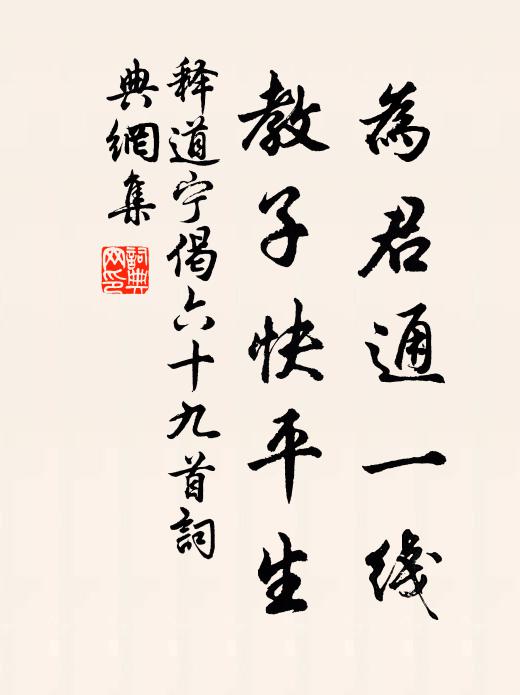 為君通一线
教子快平生
释道宁偈六十九首詞
典網集
詞典網印